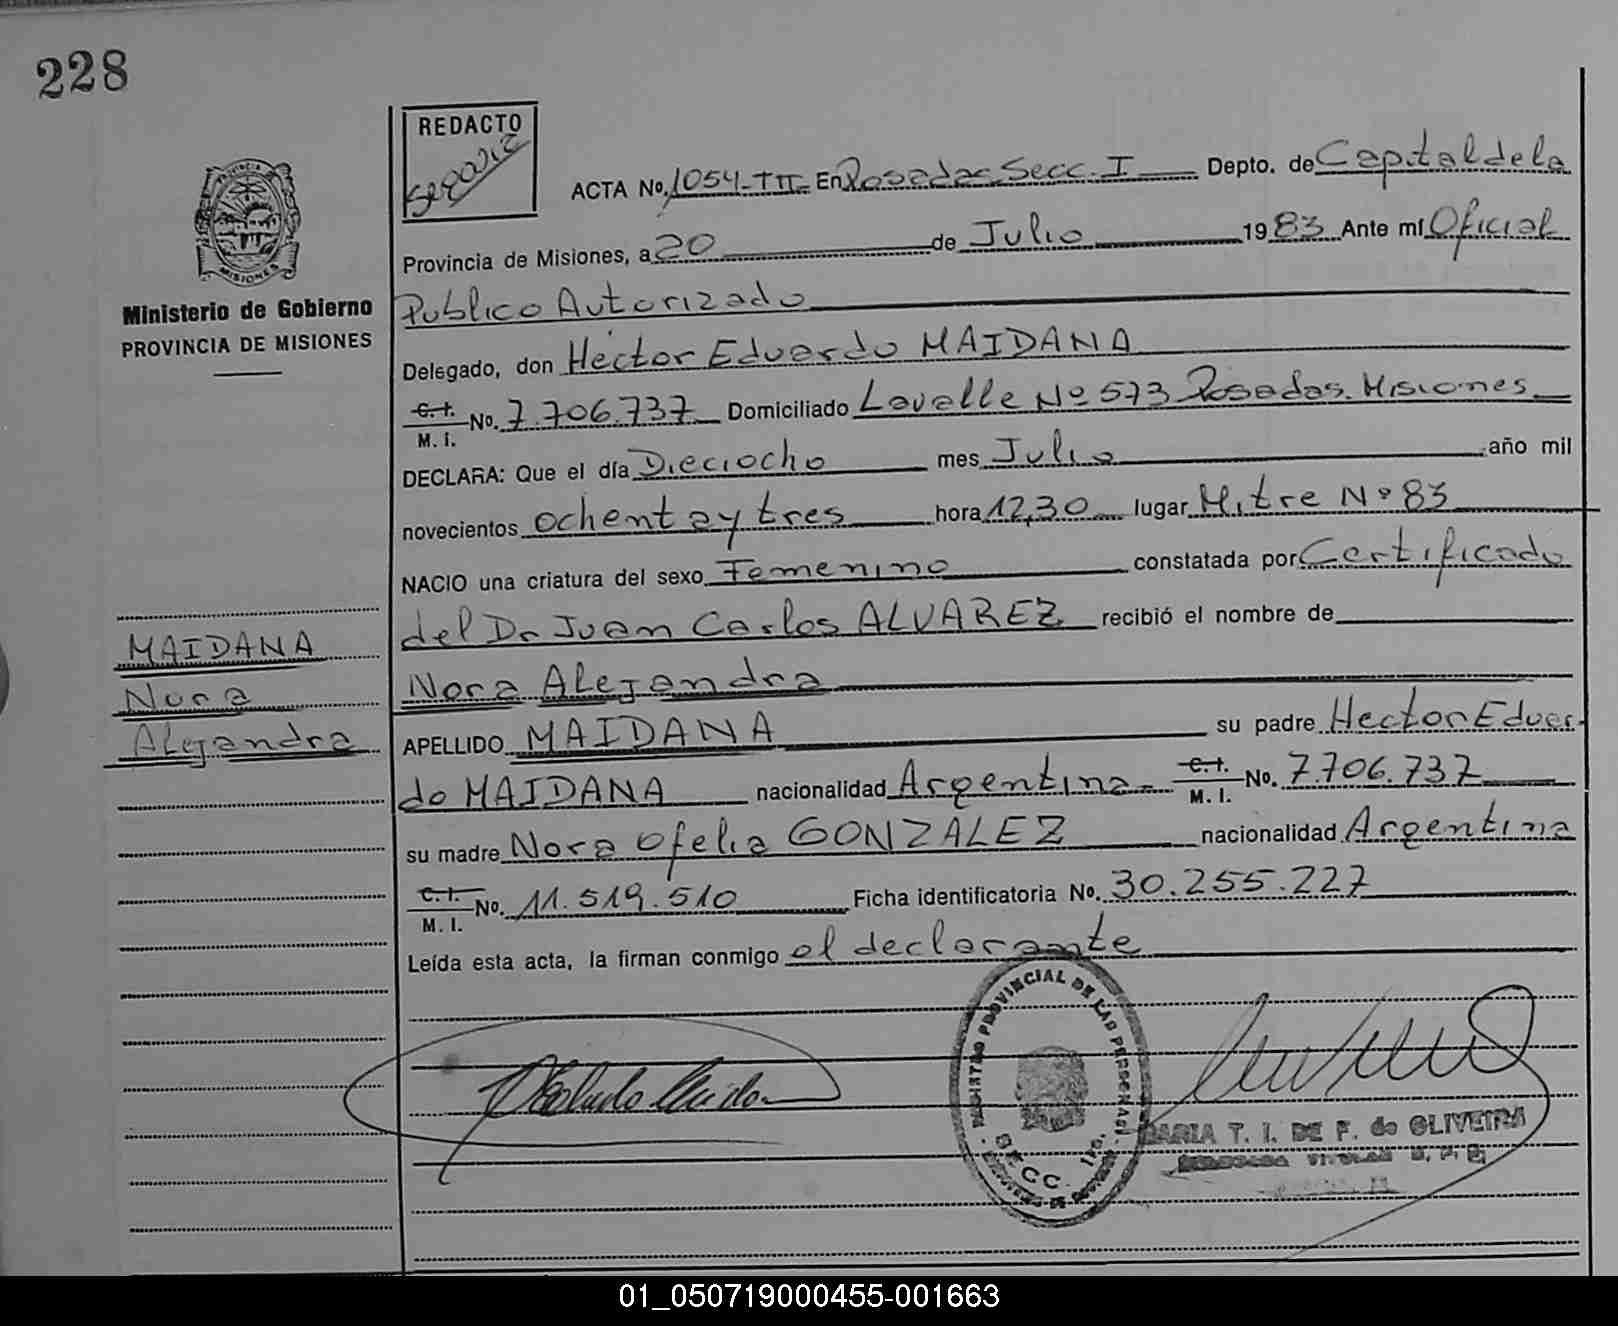 228
REDACTO
ACTA No. 1054-TII En Posadas Secc. I Depto. de Capital de la
Provincia de Misiones, a 20 de Julio 1983 Ante mí Oficial
Publico Autorizado
Delegado, don Hector Eduardo MAIDANA
C.I. M.I. No. 7.706.737 Domiciliado Lavalle Nº 573 Posadas. Misiones
DECLARA: Que el día Dieciocho mes Julio año mil
novecientos ochenta y tres hora 12,30 lugar Mitre Nº 83
NACIO una criatura del sexo Femenino constatada por Certificado
del Dr Juan Carlos ALVAREZ recibió el nombre de
Nora Alejandra
APELLIDO MAIDANA su padre Hector Eduar-
do MAIDANA nacionalidad Argentina C.I. M.I. No. 7.706.737
su madre Nora Ofelia GONZALEZ nacionalidad Argentina
C.I. M.I. No. 11.519.510 Ficha identificatoria No. 30.255.227
Leída esta acta, la firman conmigo el declarante
PROVINCIA
MISIONES
Ministerio de Gobierno
PROVINCIA DE MISIONES
MAIDANA
Nora
Alejandra
REGISTRO PROVINCIAL DE LAS PERSONAS
SECC. 1ra.
MARIA T. I. DE F. de OLIVEIRA
01_050719000455-001663